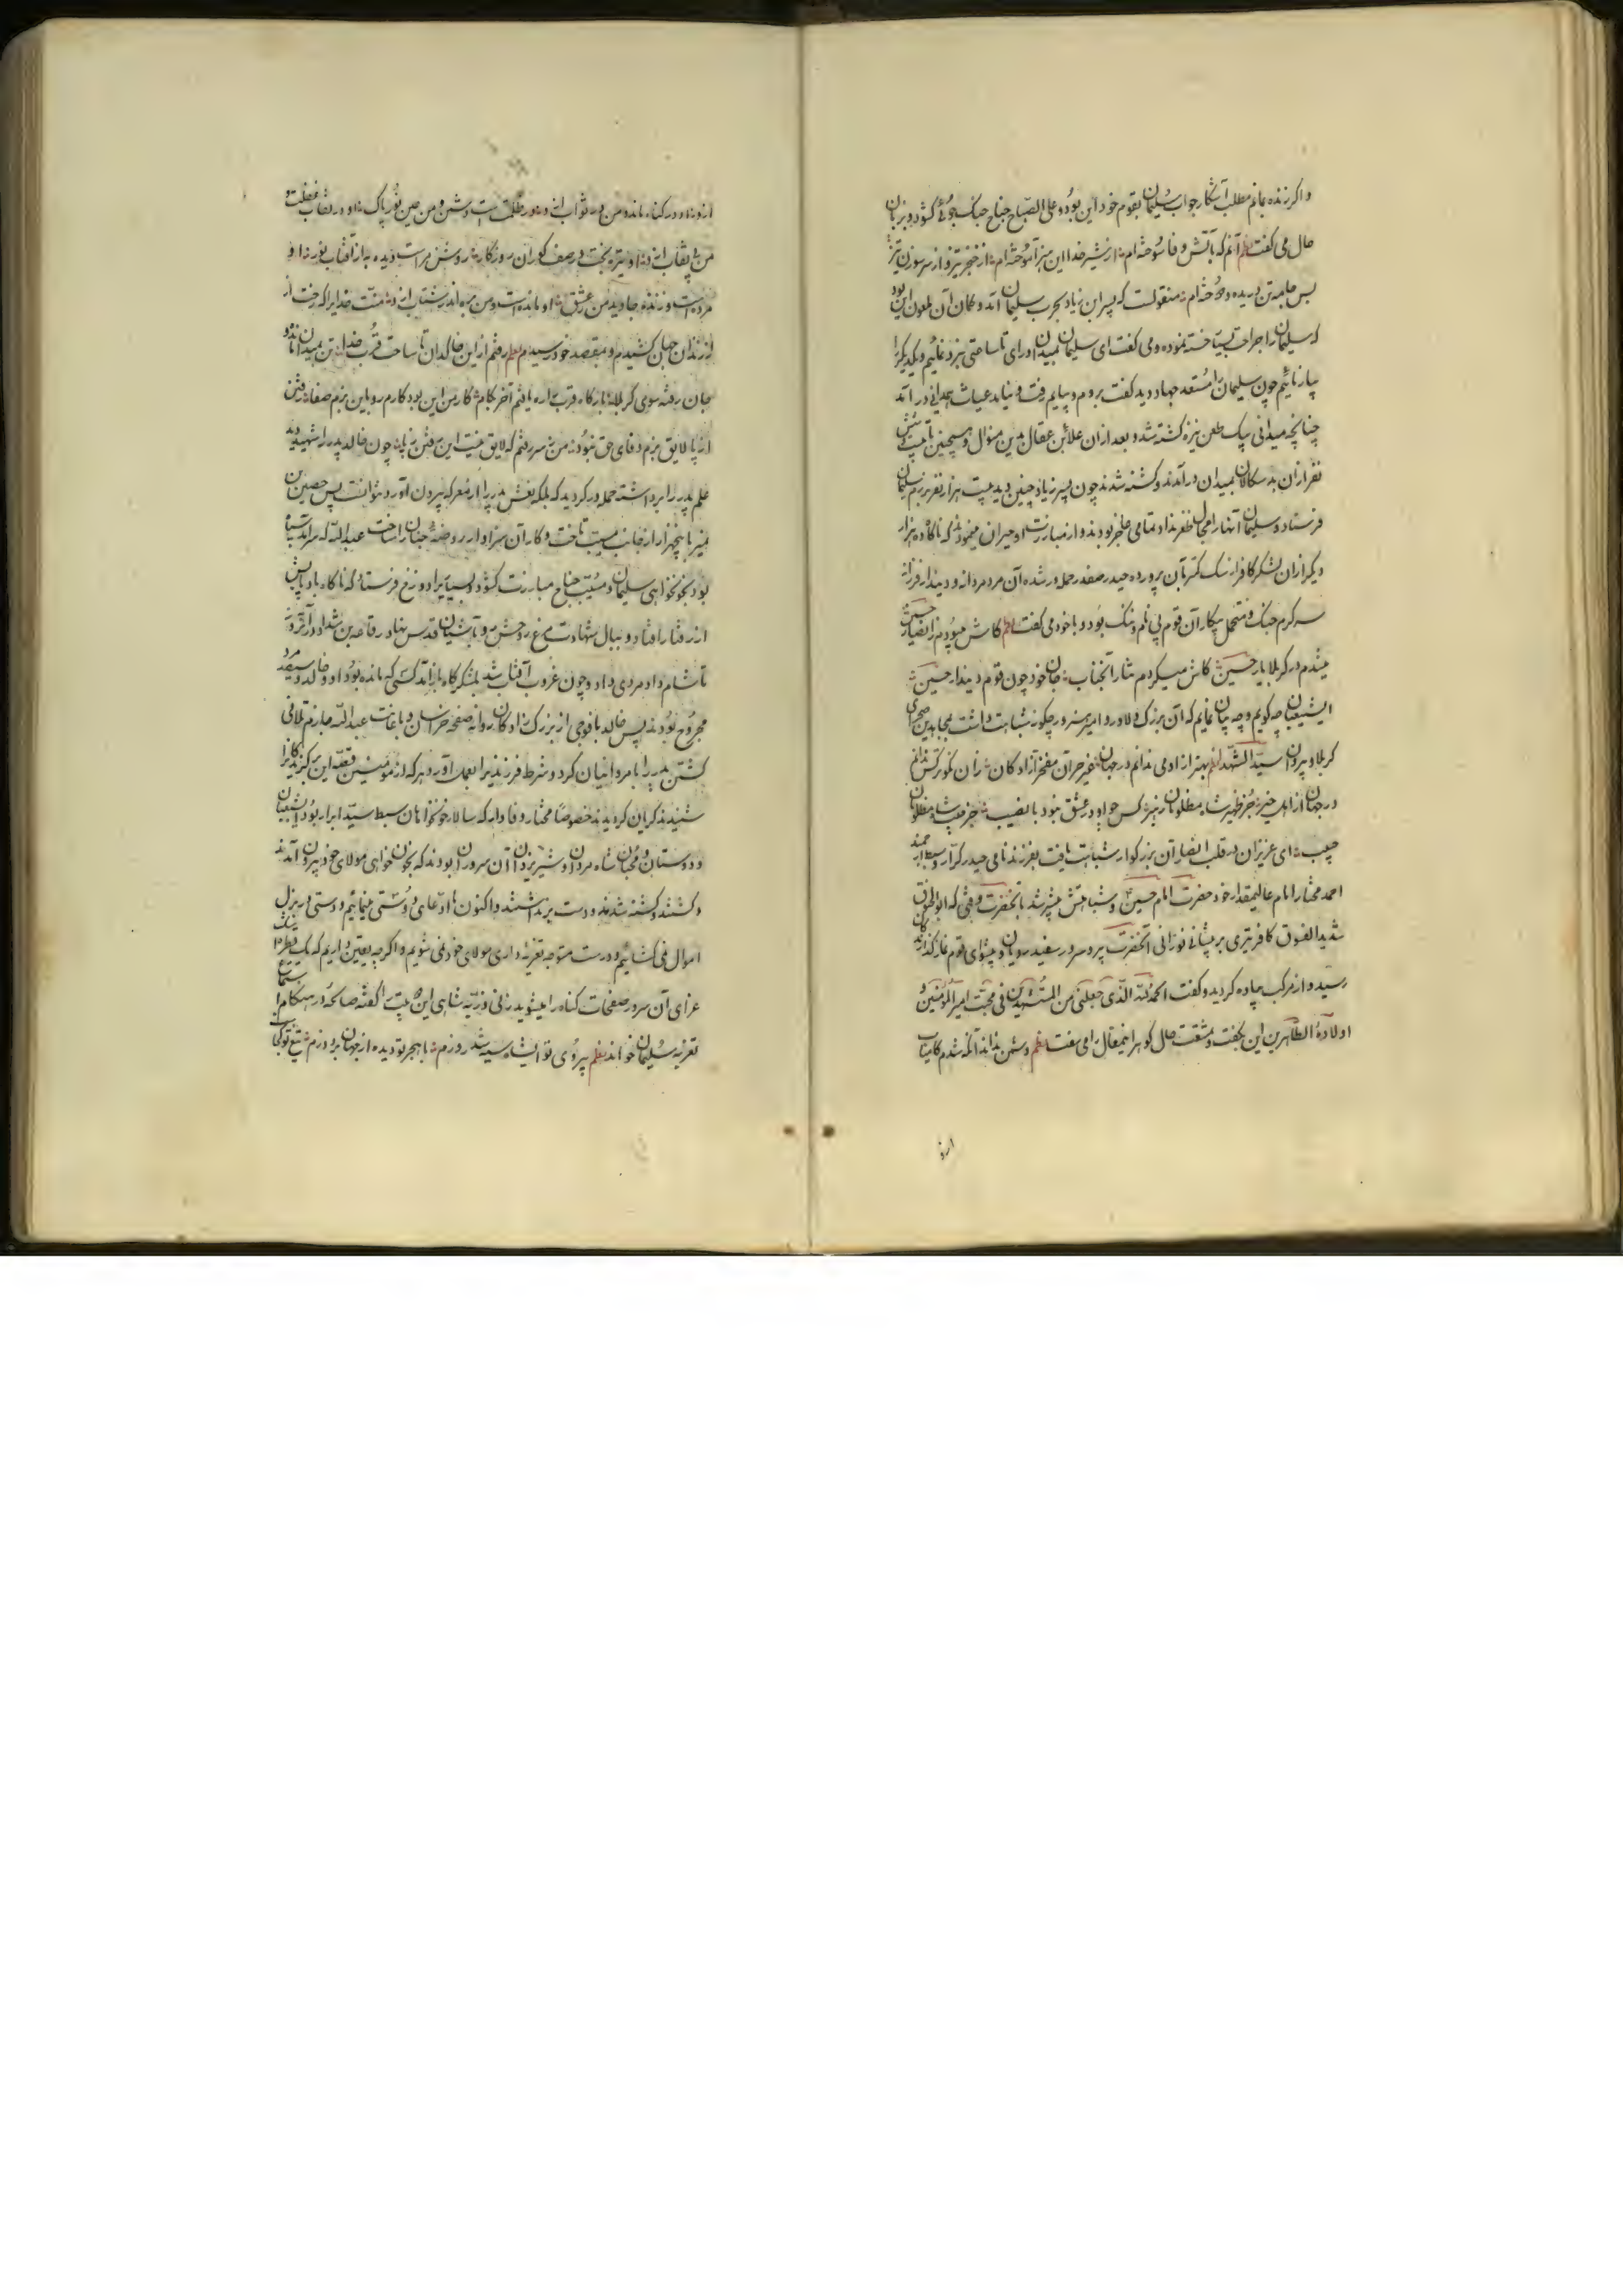 واکر زنده بمانم مطلب آشکار جواب سلیمان بقوم خود این بود و علی الصباح جناح جنک جوئی کشود و بزبان
حال می کفت نظم آنم که بآتش وفا سوخته ام از شیر خدا این هنر آموخته ام از خنجر تیز و از سر سوزن تیر
بس جامه تن دریده و دوخته ام منقولست که پسر ابن زیاد بحرب سلیمان آمد و کمان آن ملعون این بود
که سلیمان را جراحت بیتاخته نموده و می کفت ای سلیمان بمیدان درای تا ساعتی نبرد نمائیم و یکدیکر را
بیازمائیم چون سلیمان را مستعد جهاد دید کفت بروم و بیایم رفت و نیامد عیاث همدانی در آمد
چنانچه میدانی بیک طعن نیزه کشته شد و بعد از ان علابن عقال بدین منوال و همچنین تا بیست شش
نفر ازان بد سکالان بمیدان در آمدند و کشته شدند چون پسر زیاد چنین دید بیست هزار نفر برزم سلیمان
فرستاد و سلیمان آنها را مجال ظفر نداد و تمامی عاجز بودند و از مبارزت او حیران میخوردند که ناکاه ده هزار
دیکر ازان لشکر کافر از سک کمتر بآن پرورده حیدر صفدر حمله ور شده آن مرد مردانه و دیندار فرزانه
سرکرم جنک و متحمل پیکار آن قوم بی نام و ننک بود و با خود می کفت نظم کاش میبودم ز انصار حسین
میشدم در کربلا یار حسین کاش میکردم نثار آنجناب جان خود چون قوم دیندار حسین
ای شیعیان چه کویم و چه بیان نمایم که آن بزرک دلاور و امیر هنرور چکونه شباهت داشت بمجاهدین صحرای
کربلا و پیروان سید الشهدا نظم بهتر از ادمی ندانم در جهان غیر حر آن مفخر آزادکان زان نکوتر کس ندانم
در جهان از اهل خیر جز ظهیر شاه مظلومان زهیر کس چو او در عشق نبود با نصیب جز حبیب شاه مظلومان
حبیب ای عزیزان در قلب انصار آن بزرکوار شباهت یافت بفرزند نامی حیدر کرار و سبط ارجمند
احمد مختار امام عالیمقدار خود حضرت امام حسین و شباهتش بیشتر شد بآنحضرت وقتی که ابوالحتوف
شدید الفسوق کافر تیری بر پیشانی نورانی آنحضرت پیر و سرور سفید رویان و پیشوای قوم نماز کذارنده کان
رسید و از مرکب پیاده کردید و کفت الحمد لله الذی جعلنی من المستشهدین فی محبت امیر المؤمنین و
اولاده الطاهرین این بکفت و مشقت حال کوهر این مقال را می سفت نظم دشمن نداند آنکه شدم کامیاب
ازو
ازو او در کناه مانده و من در ثواب ازو او در ظلمت است و دشمن و من عین نور پاک او در نقاب غفلت و
من بی نقاب ازو او تیره بخت و در صف کوران روزکار روشن مراست دیده به از آفتاب نور او
مرده است و زنده جاوید من ز عشق او مانده است و من بره اندر شتاب ازو منت خدایرا که رخت از
از زندان جهان کشیدم و بمقصد خود رسیدم نظم رفتم ازین خاکدان تا ساحت قرب خدا تن بمیدان ماند و
جان رفته سوی کربلا بارکاه قرب را ره یافتم آخر بکام کار من این بود کارم رو باین بزم صفا رفتن
از پا لایق بزم وفای حق نبود من بسر رفتم که لایق نیست این رفتن بپا چون خالد پدر را شهید دید
علم پدر را برداشته حمله ور کردید که بلکه نعش پدر را از معرکه بیرون آورد نتوانست پس حصین بن
نمیر با پنجهزار از جانب مسیب تاخت و کار آن سزاوار روضه جنان را ساخت عبدالله که سرآمد سپاه
بود بخونخواهی سلیمان و مسیب جناح مبارزت کشود و بسیاری را بدوزخ فرستاد که ناکاه باد پایش
از رفتار افتاد و ببال شهادت مرغ روحش رو بآشیان قدس نهاد رفاعه بن شداد در آنروز
تا شام داد مردی داد و چون غروب آفتاب شد بلشکرکاه باز آمد کسی که مانده بود او و خالد و سیصد مرد
مجروح بودند پس خالد با فوجی از بزرک زادکان روانه صفحه خراسان و باعانت عبدالله حازم تلافی
کشتن پدر را با مروانیان کرد و شرط فرزندیرا بعمل آورد هر که از مؤمنین قصه این برکزیدکان را
شنیدند کریان کردیدند خصوصا مختار وفادار که سالار خونخواهان سبط سید ابرار بود ای شیعیان
و دوستان و محبان شاه مردان و شیر یزدان آن سروران بودند که بخون خواهی مولای خود بیرون آمدند
و کشتند و کشته شدند و دست برنداشتند و اکنون ما ادعای دوستی مینمائیم و دستی در بذل
اموال نمی کشائیم و درست متوجه تعزیه داری مولای خود نمی شویم و اکرچه یقین داریم که یک قطره اشک
عزای آن سرور صفحات کناه را میشوید زنی ذریه شاهی این بیت را کفته صالحه در هنکام استماع
تعزیه سلیمان خواند نظم بیروی تو ایشاه سیه شد روزم با هجر تو دیده از جهان بر دوزم تیغ تو کجا